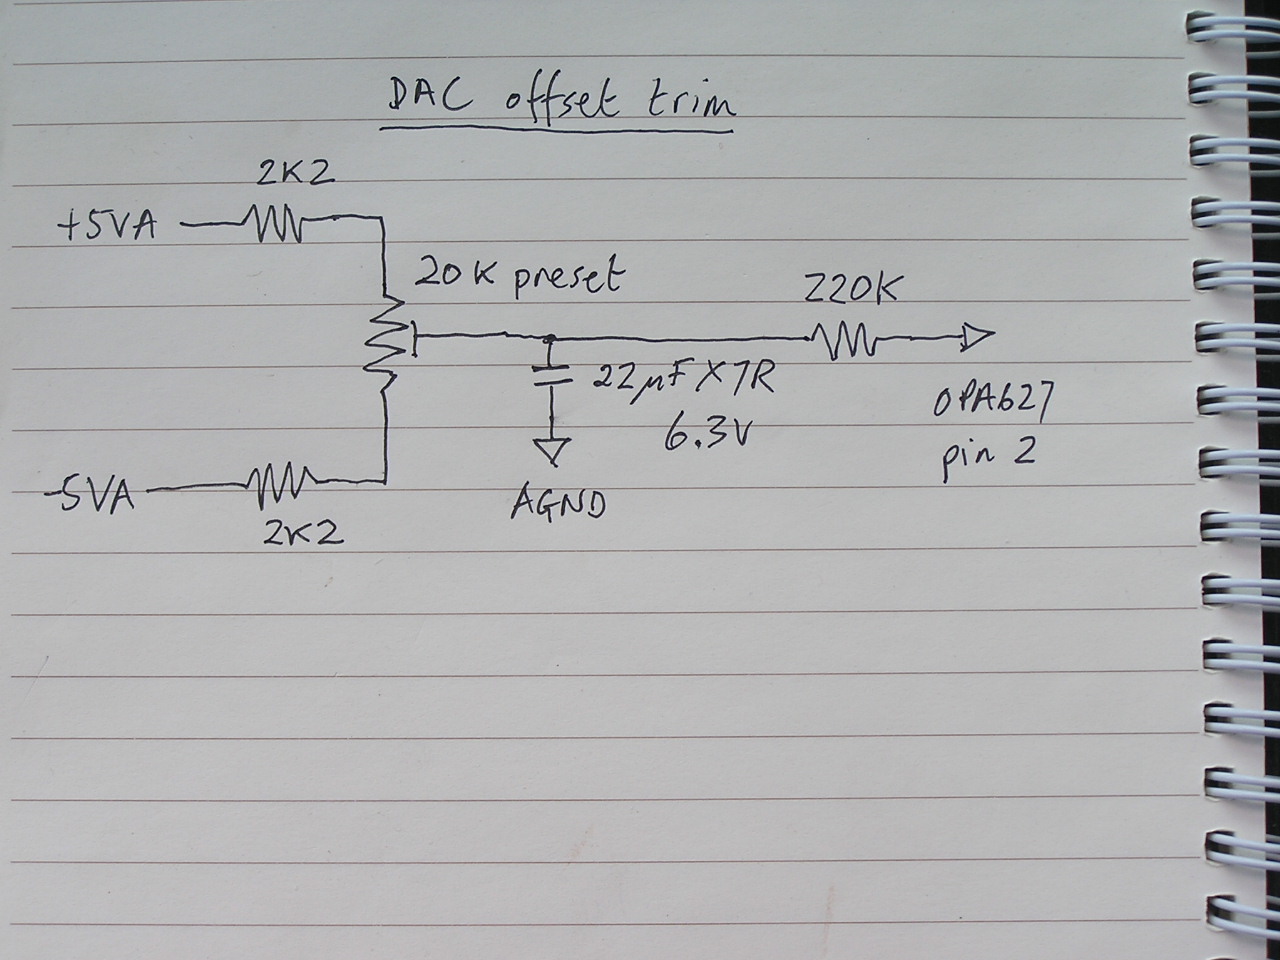 DAC offset trim
2K2
+5VA
20K preset
220K
22µF X7R
6.3V
OPA627
pin 2
-5VA
AGND
2K2